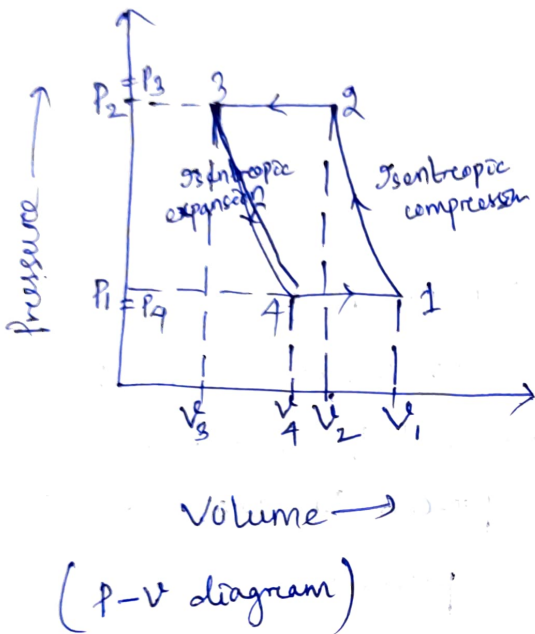 P2 = P3
3
2
Isentropic
expansion
Isentropic
compression
Pressure
P1 = P4
4
1
V3
V4
V2
V1
Volume
(P-V diagram)